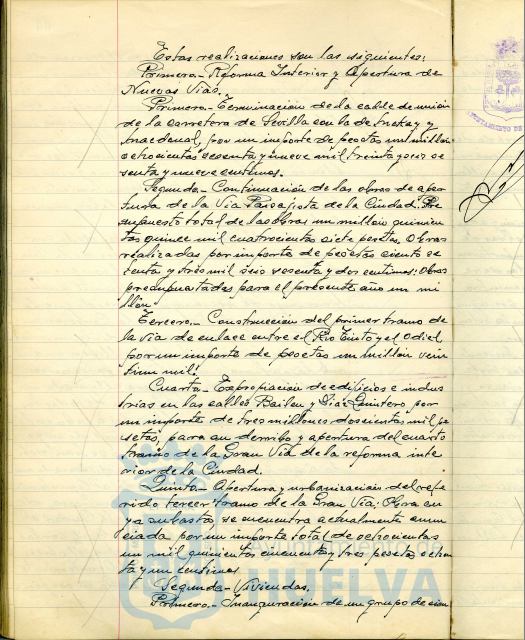 Estas realizaciones son las siguientes:
Primero.- Reforma Interior y apertura de
Nuevas Vías.
Primero.- Terminación de la calle de unión
de la carretera de Sevilla con la de
por un importe de pesetas un millón
ochocientas sesenta y nueve mil treinta y seis se
senta y nueve centimos.
Segunda.- Continuación de las obras de aper
tura de la Vía Paisajista de la Ciudad. Pre
supuesto total de las obras un millón quinien
tas quince mil cuatrocientas siete pesetas. Obras
realizadas por importe de pesetas ciento se
tenta y tres mil seis sesenta y dos centimos: Obras
presupuestadas para el presente año un mi
llón.
Tercero.- Construcción del primer tramo de
la vía de enlace entre el Rio Tinto y el Odiel,
por un importe de pesetas un millón vein
mil.
Cuarta.- Expropiación de edificios e indus
trias en las calles Bailen y Diaz Quintero por
un importe de tres millones doscientas mil pe
setas, para su derribo y apertura del cuarto
tramo de la Gran Vía de la reforma inte
rior de la Ciudad.
Quinto.- Apertura y urbanización del refe
rido tercer tramo de la Gran Vía. Obra cu
ya subasta se encuentra actualmente anun
ciada por un importe total de ochocientas
un mil quinientas cincuenta y tres pesetas ochen
ta y un centimos.
Segunda.- Viviendas.
Primero.- Inauguración de un grupo de cien
HUELVA